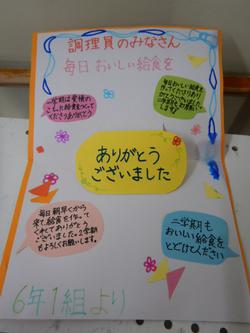 調理員のみなさん
毎日おいしい給食を
一学期は愛情の
こもった給食をつくって
くださりありがとう
毎日おいしい給食を
作ってくださりあり
がとうございました。
ありがとう
ございました
毎日朝早くから
来て、給食を作って
くれてありがとう
ございました。2学期
もよろしくお願いします。
二学期も
おいしい給食を
とどけてください
6年1組より